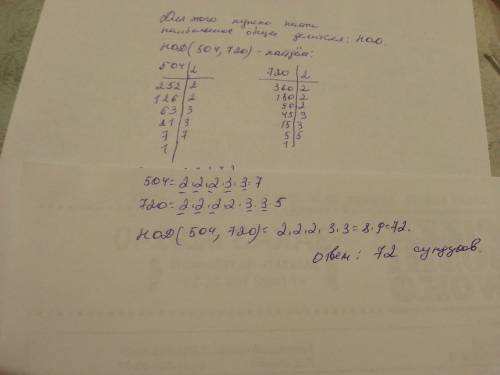 Для этого нужно найти
наибольшее общее делитель: НОД.
НОД(504, 720) - найдём:
504|2
252|2
126|2
63|3
21|3
7|7
1|
720|2
360|2
180|2
90|2
45|3
15|3
5|5
1|
504=2.2.2.3.3.7
720=2.2.2.2.3.3.5
НОД(504, 720)=2.2.2.3.3=8.9=72.
Ответ: 72